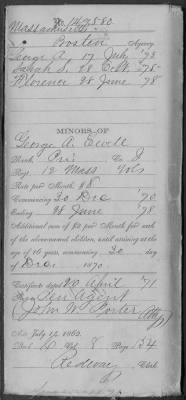 No. 147580
Massachusetts
Boston Agency.
George A. 17 July '73
Sarah S. 28 Oct. '75
Florence 28 June '78
MINORS OF
George A. Ewell
Rank Pri. Co. I
Regt. 12 Mass Vols
Rate per Month $8
Commencing 20 Dec '70
Ending 28 June '78
Additional sum of $2 per Month for each
of the abovenamed children, until arriving at the
age of 16 years, commencing 20 day
of Dec., 1870.
Certificate dated 20 April '71
Pen Agent
John W. Porter
Act July 14, 1862.
Book D Vol. 8 Page 154
Clerk